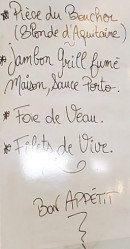 * Pièce du Boucher
(Blonde d'Aquitaine)
* Jambon Grill fumé
Maison Sauce Porto.
* Foie de Veau.
* Filets de Vive.
Bon APPÉTIT